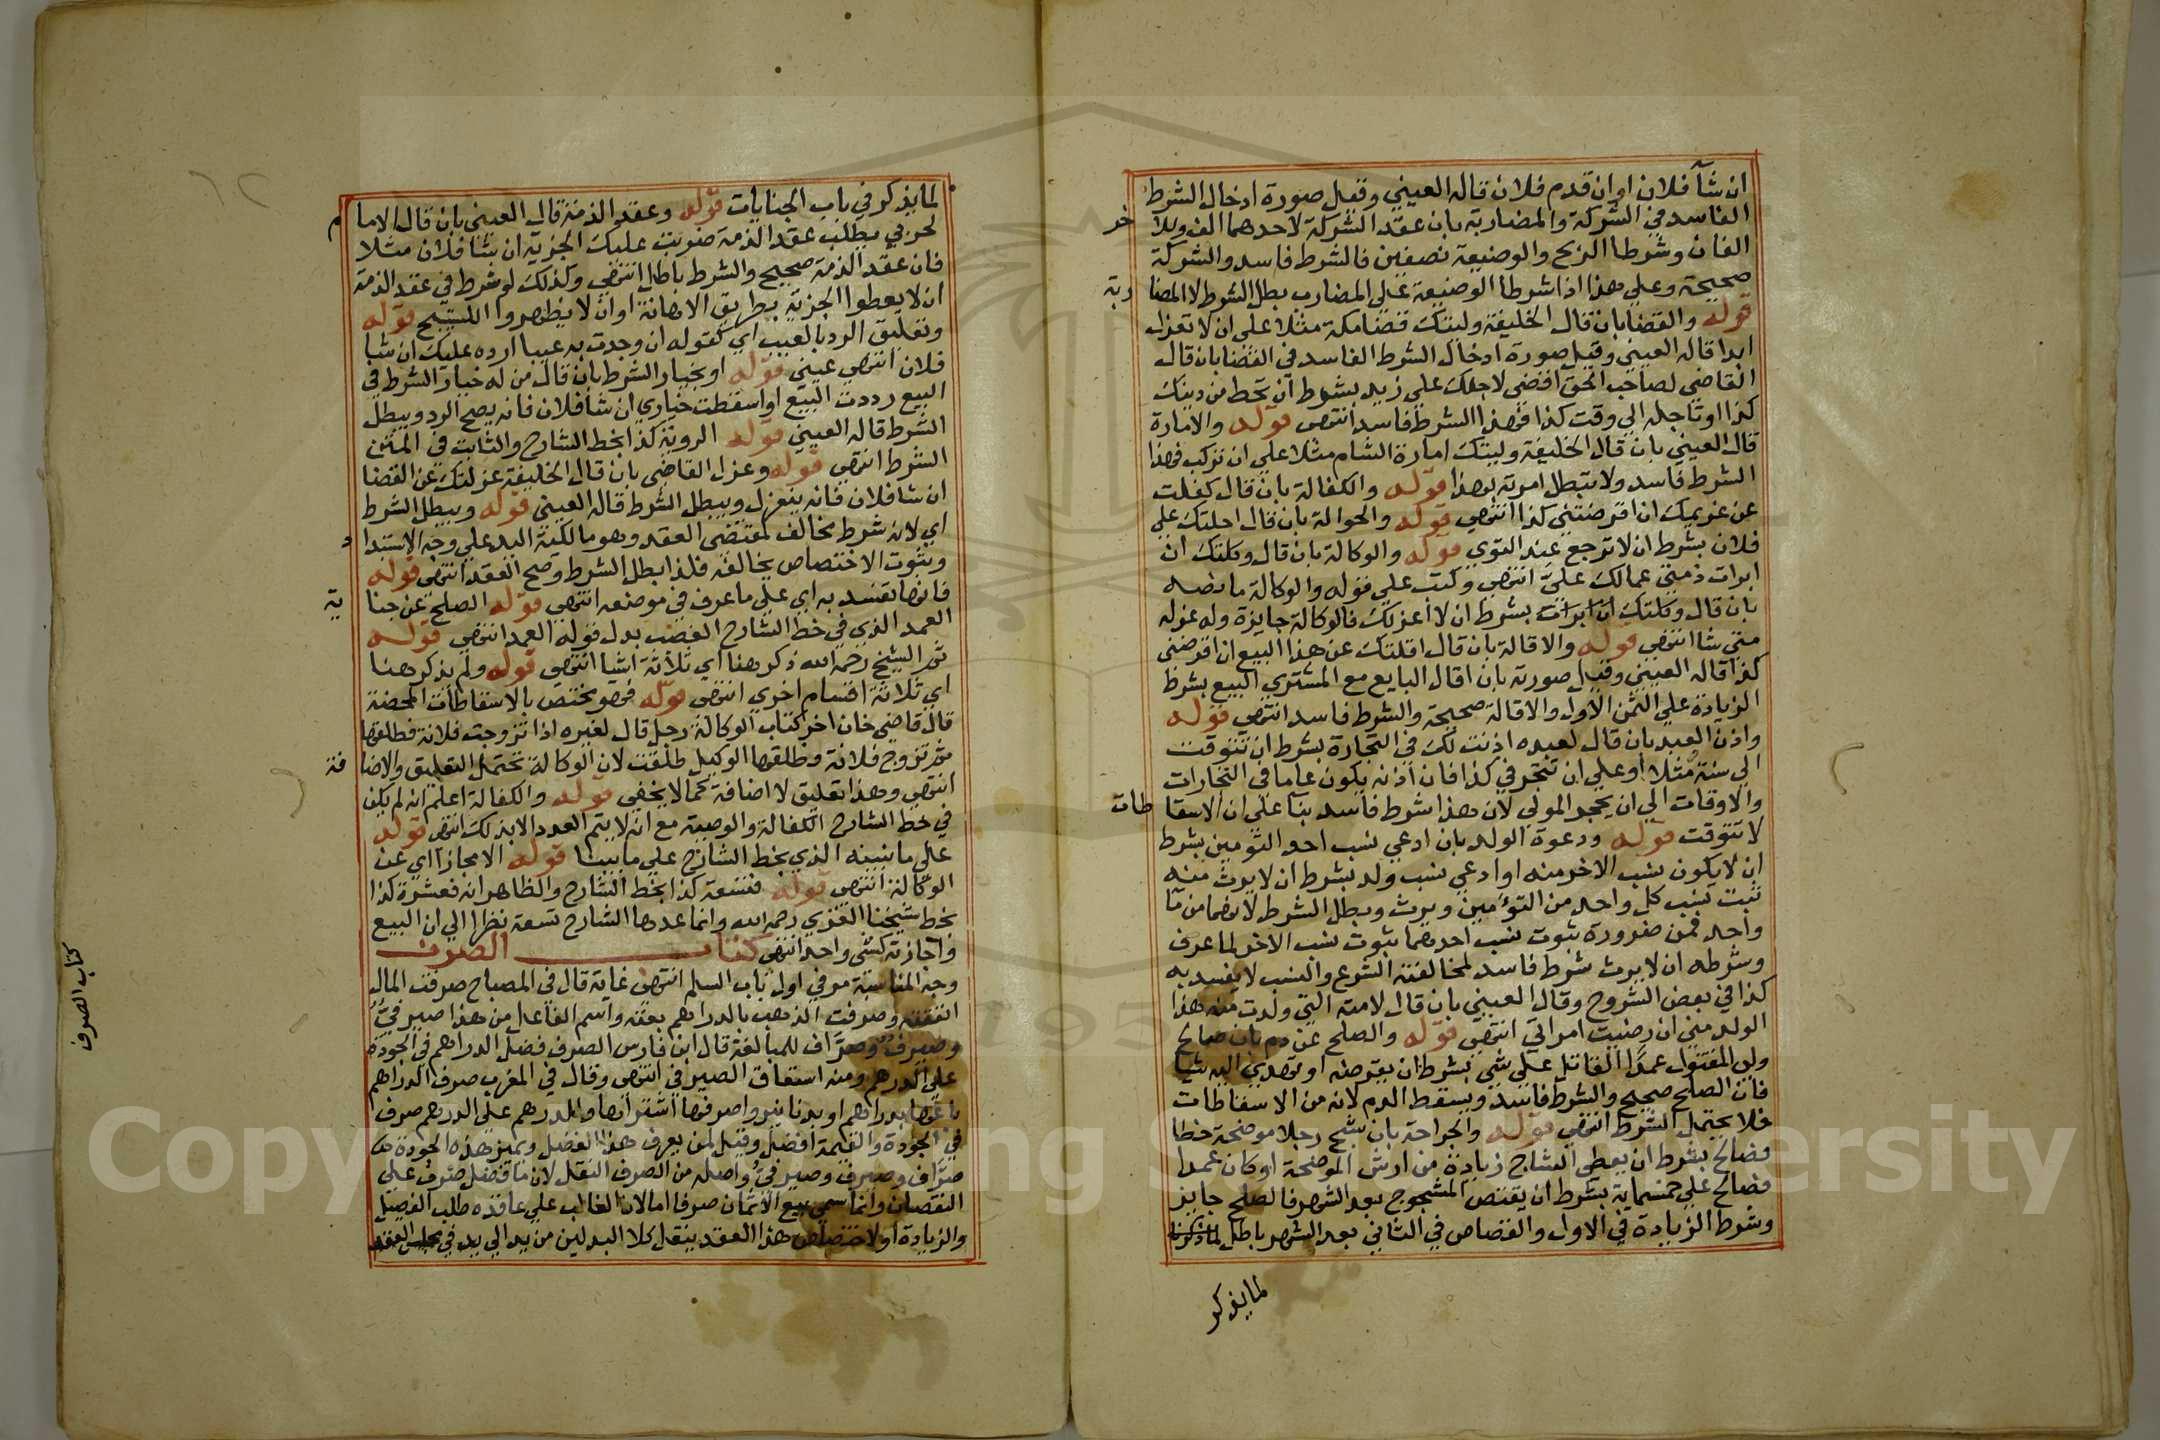 ان شآ فلان او ان قدم فلان قاله العيني وقيل صورة ادخال الشرط
الفاسد في الشركة والمضاربة بان عقد الشركة لاحدهما الف وللا خر
الفان وشرطا الربح والوضيعة نصفين فالشرط فاسد والشركة
صحيحة وعلي هذا اذا شرطا الوضيعة علي المضارب بطل الشرط لا المضا ربة
قوله والقضا بان قال الخليفة وليتك قضا مكة مثلا علي ان لا تعزل
ابدا قاله العيني وقيل صورة ادخال الشرط الفاسد في القضا بان قال
القاضي لصاحب الحق اقضي لاجلك علي زيد بشرط ان تحط من دينك
كذا او تاجله الي وقت كذا فهذا الشرط فاسد انتهى قوله والامارة
قال العيني بان قال الخليفة وليتك امارة الشام مثلا علي ان تركب فهذا
الشرط فاسد ولا تبطل امرته بهذا قوله والكفالة بان قال كفلت
عن غريمك ان اقرضتني كذا انتهي قوله والحوالة بان قال احلتك علي
فلان بشرط ان لا ترجع عند التوي قوله والوكالة بان قال وكلتك ان
ابرات ذمتي عمالك علي انتهي وكتب علي قوله والوكالة ما نصه
بان قال وكلتك ان ابرات بشرط ان لا اعزلك فالوكالة جايزة وله عزله
متي شا انتهي قوله والاقالة بان قال اقلتك عن هذا البيع ان اقرضتني
كذا قاله العيني وقيل صورته بان اقال البايع مع المشتري البيع بشرط
الزيادة علي الثمن الاول والاقالة صحيحة والشرط فاسد انتهي قوله
واذن العبد بان قال لعبده اذنت لك في التجارة بشرط ان تتوقت
الي سنة مثلا او علي ان تتجر في كذا فان اذنه يكون عاما في التجارات
والاوقات الي ان يحجر المولي لان هذا شرط فاسد بنآ علي ان الاسقا طات
لا تتوقت قوله ودعوة الولد بان ادعي نسب احد التومين بشرط
ان لا يكون نسب الاخر منه او ادعي نسب ولد بشرط ان لا يرث منه
ثبت نسب كل واحد من التؤمين ويرث وبطل الشرط لانهما من مآ
واحد فمن ضرورة ثبوت نسب احدهما ثبوت نسب الاخر لما عرف
وشرطه ان لا يرث شرط فاسد لمخالفته الشرع والنسب لا يفسد به
كذا في بعض الشروح وقال العيني بان قال لامته التي ولدت منه هذا
الولد مني ان رضيت امراتي انتهي قوله والصلح عن دم بان صالح
ولي المقتول عمدا القاتل علي شي بشرط ان يقرضه او يهدي اليه شيا
فان الصلح صحيح والشرط فاسد ويسقط الدم لانه من الاسقاطات
فلا يحتمل الشرط انتهي قوله والجراحة بان شج رجلا موضحة خطا
فصالح بشرط ان يعطي الشاج زيادة من ارش الموضحة او كان عمدا
فصالح علي خمسماية بشرط ان يقتص المشجوج بعد الشهر فالصلح جايز
وشرط الزيادة في الاول والقصاص في الثاني بعد الشهر باطل
لما يذكر
لما يذكر في باب الجنايات قوله وعقد الذمة قال العيني بان قال الاما م
لحربي يطلب عقد الذمة ضربت عليك الجزية ان شا فلان مثلا
فان عقد الذمة صحيح والشرط باطل انتهي وكذلك لو شرط في عقد الذمة
ان لا يعطوا الجزية بطريق الاهانة او ان لا يظهروا التسبيح قوله
وتعليق الرد بالعيب اي كقوله ان وجدت به عيبا ارده عليك ان شا
فلان انتهي عيني قوله او بخيار الشرط بان قال من له خيار الشرط في
البيع رددت البيع او اسقطت خياري ان شا فلان فانه يصح الرد ويبطل
الشرط قاله العيني قوله الروية كذا بخط الشارح والثابت في المتن
الشرط انتهي قوله وعزل القاضي بان قال الخليفة عزلتك عن القضا
ان شا فلان فانه ينعزل ويبطل الشرط قاله العيني قوله ويبطل الشرط
اي لانه شرط مخالف لمقتضى العقد وهو مالكية اليد علي وجه الاستبدا د
وثبوت الاختصاص يخالفه فلذا بطل الشرط وصح العقد انتهي قوله
فانها تفسد به اي علي ما عرف في موضعه انتهي قوله الصلح عن جنا ية
العمد الذي في خط الشارح الغصب بدل قوله العمد انتهي قوله
ثم الشيخ رحمه الله ذكر هنا اي ثلاثة اشيا انتهي قوله ولم يذكر هنا
اي ثلاثة اقسام اخري انتهي قوله فهو مختص بالاسقاطات المحضة
قال قاضي خان اخر كتاب الوكالة رجل قال لغيره اذا تزوجت فلانة فطلقها
ثم تزوج فلانة وطلقها الوكيل طلقت لان الوكالة تحتمل التعليق والاضا فة
انتهي وهذا تعليق لا اضافة كما لا يخفي قوله والكفالة اعلم انه لم يكن
في خط الشارح الكفالة والوصية مع انه لا يتم العدد الا بذلك انتهي قوله
علي ما نبينه الذي بخط الشارح علي ما بينا قوله الا مجازا اي عن
الوكالة انتهي قوله فتسعة كذا بخط الشارح والظاهر انه فعشرة كذا
بخط شيخنا الغزي رحمه الله وانما عدها الشارح تسعة نظرا الي ان البيع
واجازته كشي واحد انتهي كتاب الصرف
وجه المناسبة مر في اول باب السلم انتهى غاية قال في المصباح صرفت المال
انفقته وصرفت الذهب بالدراهم بعته واسم الفاعل من هذا صيرفيٌّ
وصيرف وصرّاف للمبالغة قال ابن فارس الصرف فضل الدرهم في الجودة
علي الدرهم ومنه اشتقاق الصيرفي انتهى وقال في المغرب صرف الدراهم
باعها بدراهم او بدنانير واصرفها اشتراها وللدرهم علي الدرهم صرف
في الجودة والقيمة اي فضل وقيل لمن يعرف هذا الفضل ويميز هذه الجودة
صرّاف وصيرف وصيرفيُّ واصله من الصرف النقل لان ما فضل صرف علي
النقصان وانما سمي بيع الاثمان صرفا اما لان الغالب علي عاقده طلب الفضل
والزيادة او لاختصاص هذا العقد بنقل كلا البدلين من يد الي يد في مجلس العقد
كتاب الصرف